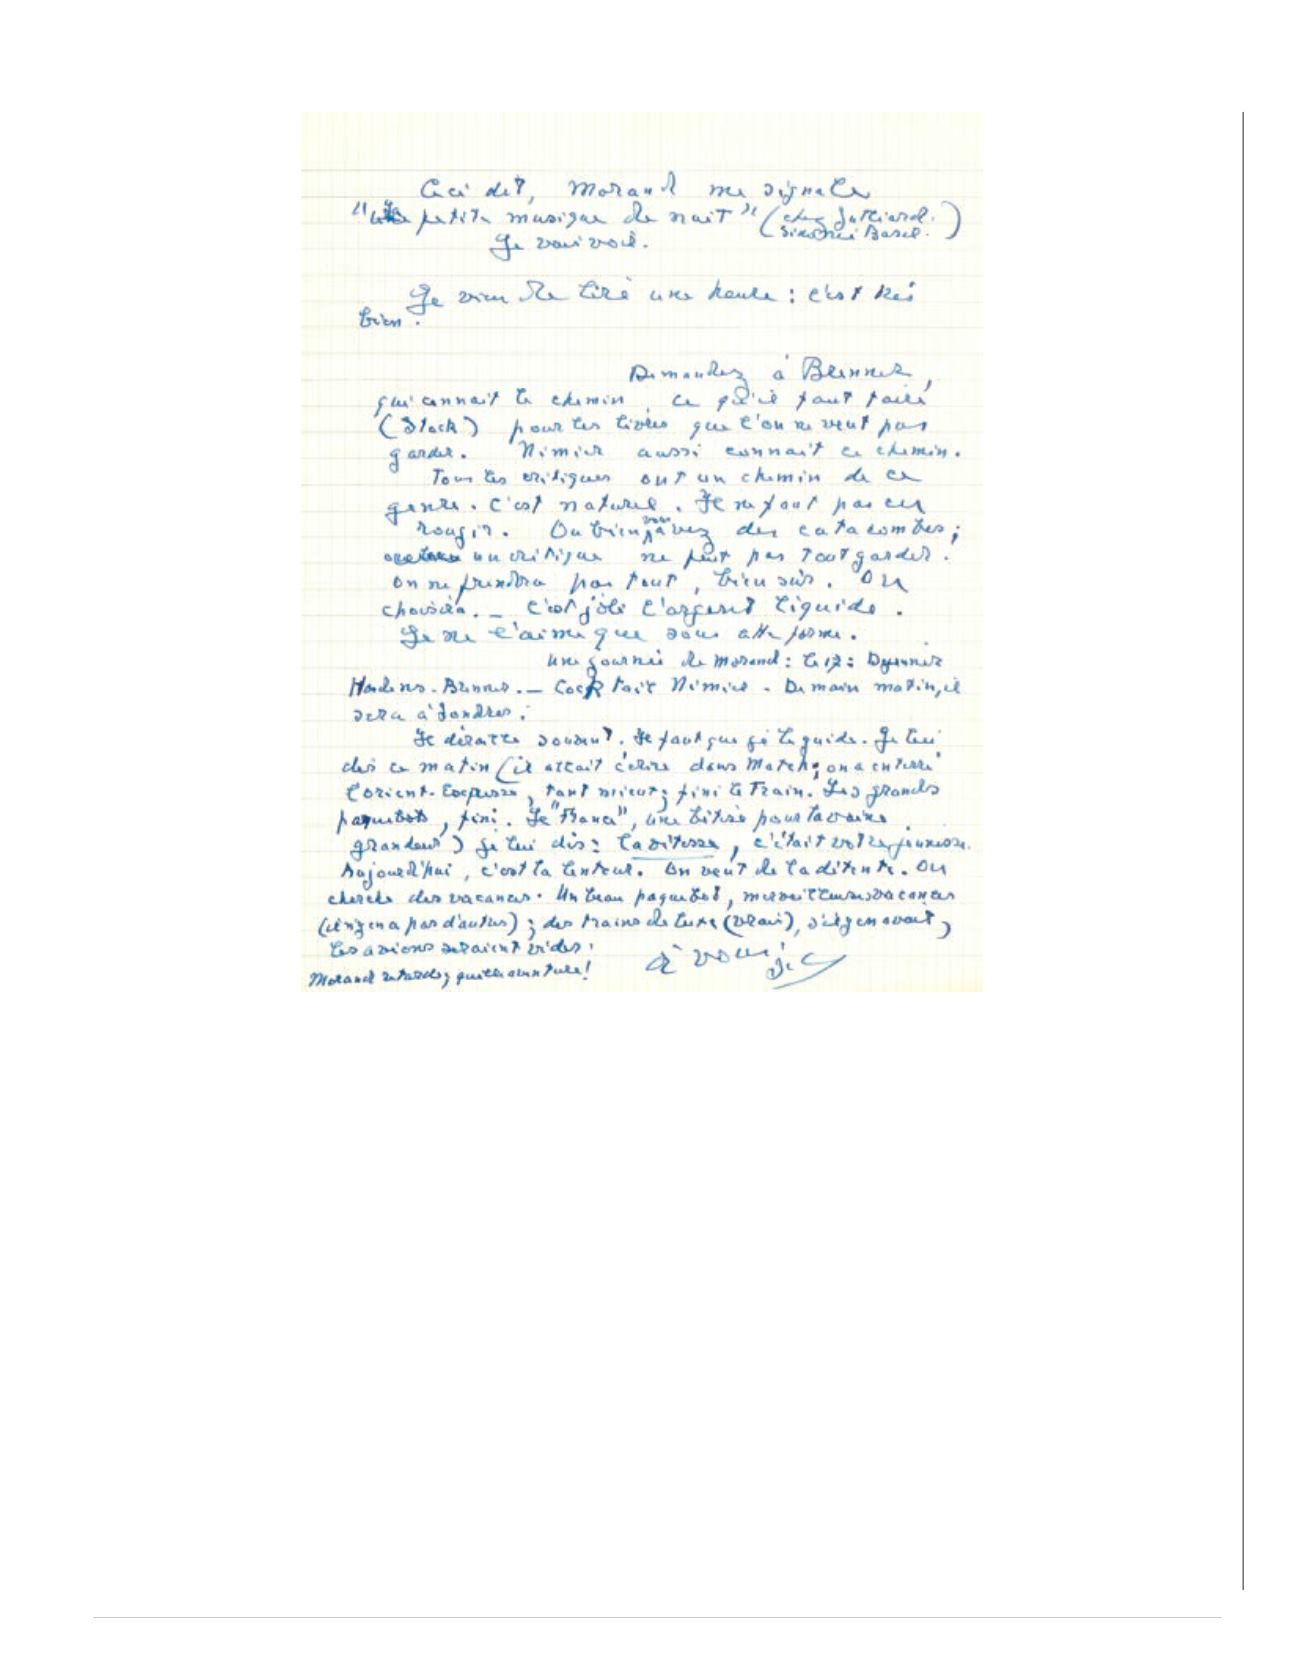 Ceci dit, Morand me signale
"une petite musique de nuit" (chez Julliard.
Basil.)
Je vais voir.
Je viens de lire une heure : c'est très
bien.
Demandez à Brenner,
qui connait le chemin, ce qu'il faut faire
(Stock) pour les livres que l'on ne veut pas
garder. Nimier aussi connait ce chemin.
Tous les critiques ont un chemin de ce
genre. C'est naturel. Il ne faut pas en
rougir. Ou bien vous avez des catacombes ;
un critique ne peut pas tout garder.
On ne prendra pas tout, bien sûr. On
choisira. _ C'est joli l'argent liquide.
Je ne l'aime que sous cette forme.
Une journée de Morand : le 17 :
Brenner. _ Cocktail Nimier. Demain matin, il
sera à Londres.
Il déraille souvent. Il faut que je le guide. Je lui
dis ce matin (il allait écrire dans Match : on a enterré
l'orient-Express, tant mieux ; fini le train. Les grands
paquebots, fini. Le "France", une bêtise pour la vaine
grandeur) je lui dis : la vitesse, c'était votre jeunesse.
Aujourd'hui, c'est la lenteur. On veut de la détente. On
cherche des vacances. Un beau paquebot, merveilleuses vacances
(il n'y en a pas d'autres) ; des trains de luxe (vrais), s'il y en avait,
les avions seraient vides.
Morand retarde,
à vous, J.C